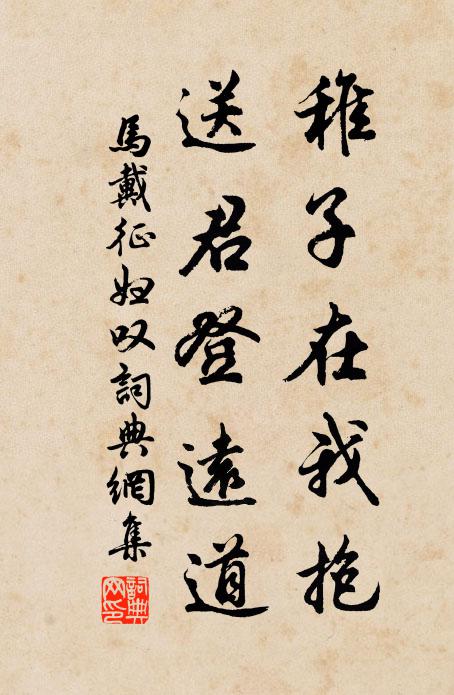 稚子在我抱
送君登遠道
馬戴征婦叹詞典網集
詞典网印